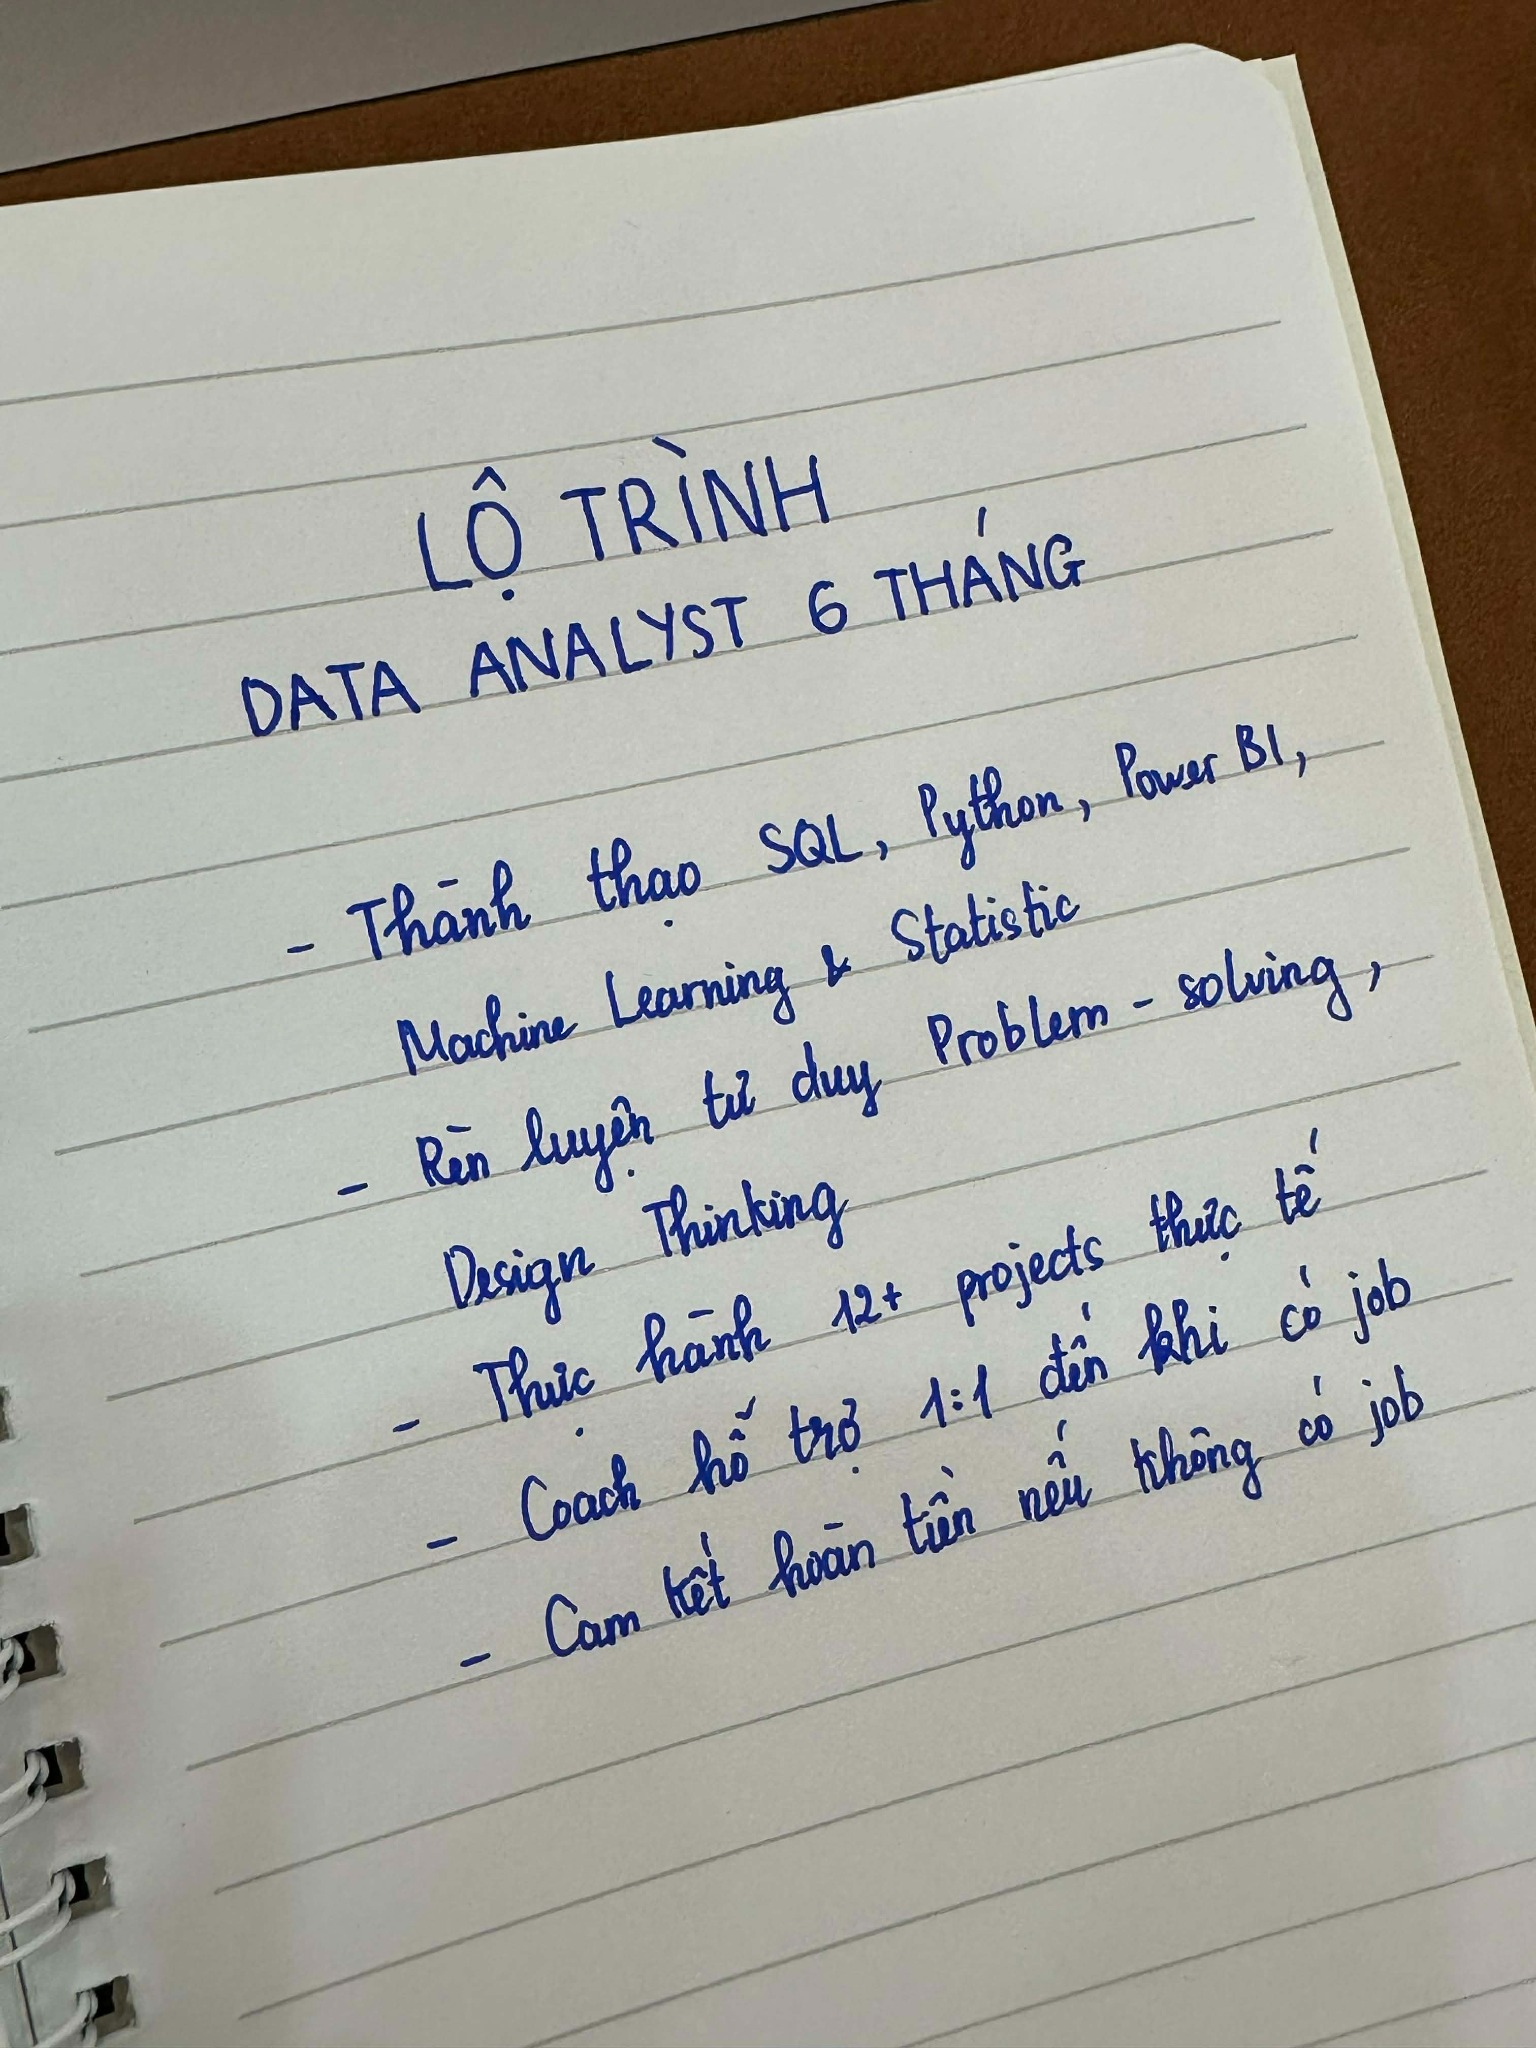 LỘ TRÌNH
DATA ANALYST 6 THÁNG
- Thành thạo SQL, Python, Power BI,
Machine Learning & Statistic
- Rèn luyện tư duy Problem - solving,
Design Thinking
- Thực hành 12+ projects thực tế
- Coach hỗ trợ 1:1 đến khi có job
- Cam kết hoàn tiền nếu không có job